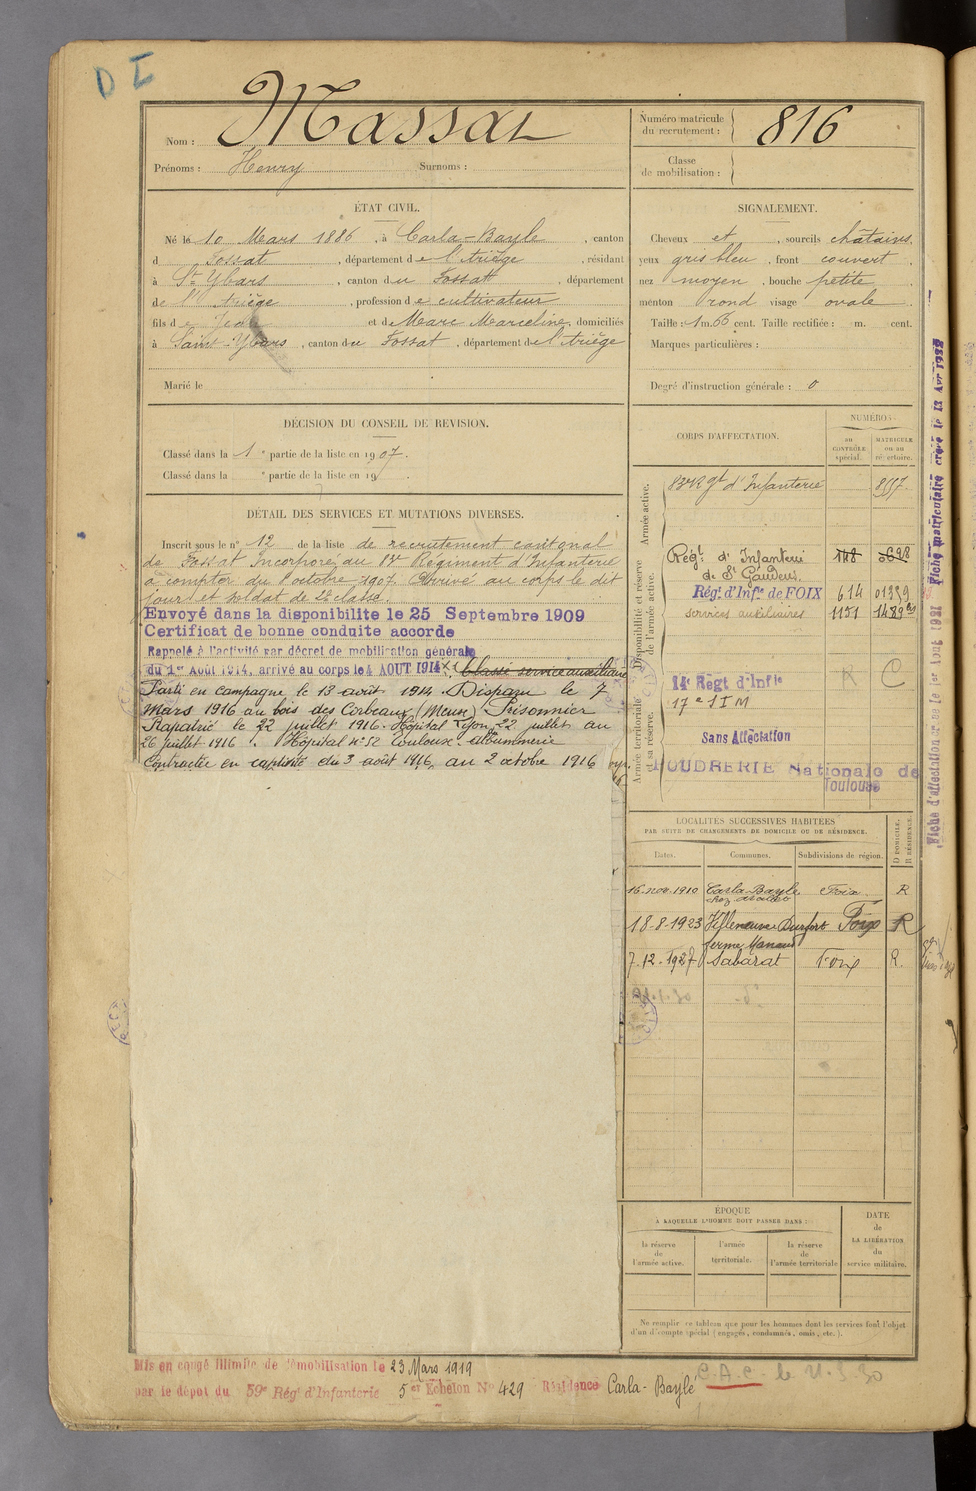 D I
Nom : Massat
Prénoms : Henry Surnoms :
Numéro matricule du recrutement : 816
Classe de mobilisation :
ÉTAT CIVIL.
Né le 10 Mars 1886, à Carla-Bayle, canton
d Fossat, département de l'Ariège, résidant
à St Ybars, canton du Fossat, département
de l'Ariège, profession de cultivateur
fils de Jean et de Marc Marceline, domiciliés
à Saint-Ybars, canton du Fossat, département de l'Ariège
Marié le
SIGNALEMENT.
Cheveux et, sourcils châtains,
yeux gris bleu, front couvert,
nez moyen, bouche petite,
menton rond visage ovale
Taille : 1 m. 66 cent. Taille rectifiée : m. cent.
Marques particulières :
Degré d'instruction générale : 0
DÉCISION DU CONSEIL DE REVISION.
Classé dans la 1e partie de la liste en 1907.
Classé dans la e partie de la liste en 19 .
DÉTAIL DES SERVICES ET MUTATIONS DIVERSES.
Inscrit sous le n° 12 de la liste de recrutement cantonal
de Fossat Incorporé au Régiment d'Infanterie
à compter du 8 octobre 1907. Arrivé au corps le dit
jour et soldat de 2e classe.
Envoyé dans la disponibilite le 25 Septembre 1909
Certificat de bonne conduite accorde
Rappelé à l'activité par décret de mobilisation générale
du 1er Août 1914, arrivé au corps le 4 AOUT 1914 Classé service auxiliaire
Parti en campagne le 13 août 1914. Disparu le 7
mars 1916 au bois des Corbeaux (Meuse) Prisonnier
Rapatrié le 22 juillet 1916. Hôpital Lyon 22 juillet au
26 juillet 1916. Hôpital n° 52 Toulouse. albuminerie
Contractée en captivité du 3 août 1916 au 2 octobre 1916
CORPS D'AFFECTATION.
NUMÉROS
au CONTRÔLE spécial.
MATRICULE ou au répertoire.
Armée active.
83e Rgt d'Infanterie 8557.
Disponibilité et réserve de l'armée active.
Régt d'Infanterie
de St Gaudens.
Régt d'Infie de FOIX 614 01339
services auxiliaires 1151
Armée territoriale et sa réserve.
14e Régt d'Infie
17e S I M
Sans Affectation
POUDRERIE Nationale de
Toulouse
R C
LOCALITÉS SUCCESSIVES HABITÉES
PAR SUITE DE CHANGEMENTS DE DOMICILE OU DE RÉSIDENCE.
Dates. Communes. Subdivisions de région. D DOMICILE. R RÉSIDENCE.
16 nov. 1910 Carla-Bayle Foix R
18-8-1923 Villeneuve Durfort Foix R
7-12-1927 Sabarat Foix R.
ÉPOQUE
À LAQUELLE L'HOMME DOIT PASSER DANS :
la réserve de l'armée active.
l'armée territoriale.
la réserve de l'armée territoriale
DATE de LA LIBÉRATION du service militaire.
Ne remplir ce tableau que pour les hommes dont les services font l'objet
d'un d'compte spécial (engagés, condamnés, omis, etc.).
Mis en congé illimité de démobilisation le 23 Mars 1919
par le dépôt du 59e Rég' d'Infanterie 5er Echelon N° 429 Résidence Carla-Bayle
C.A.C.